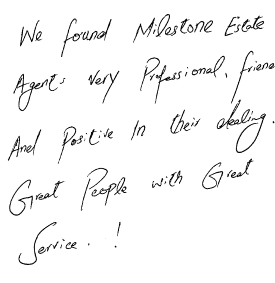 We found Milestone Estate
Agents very Professional, friend
And Positive In their dealing.
Great People with Great
Service. !